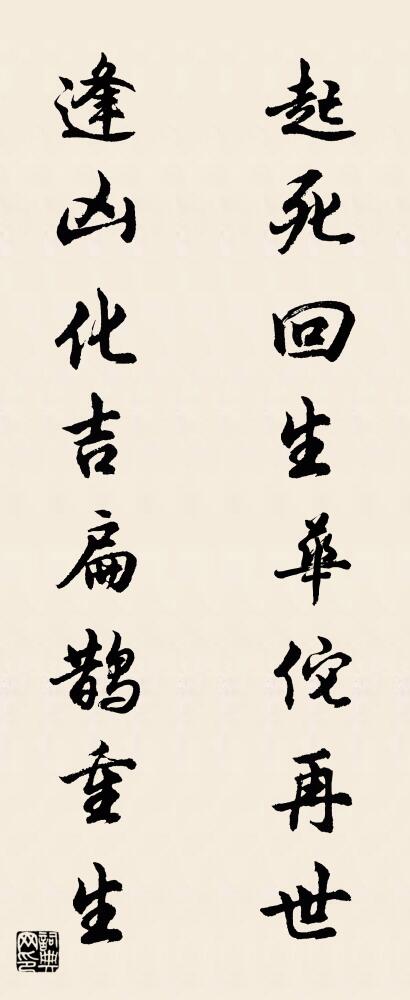 起死回生華佗再世
逢凶化吉扁鵲重生
詞典網印